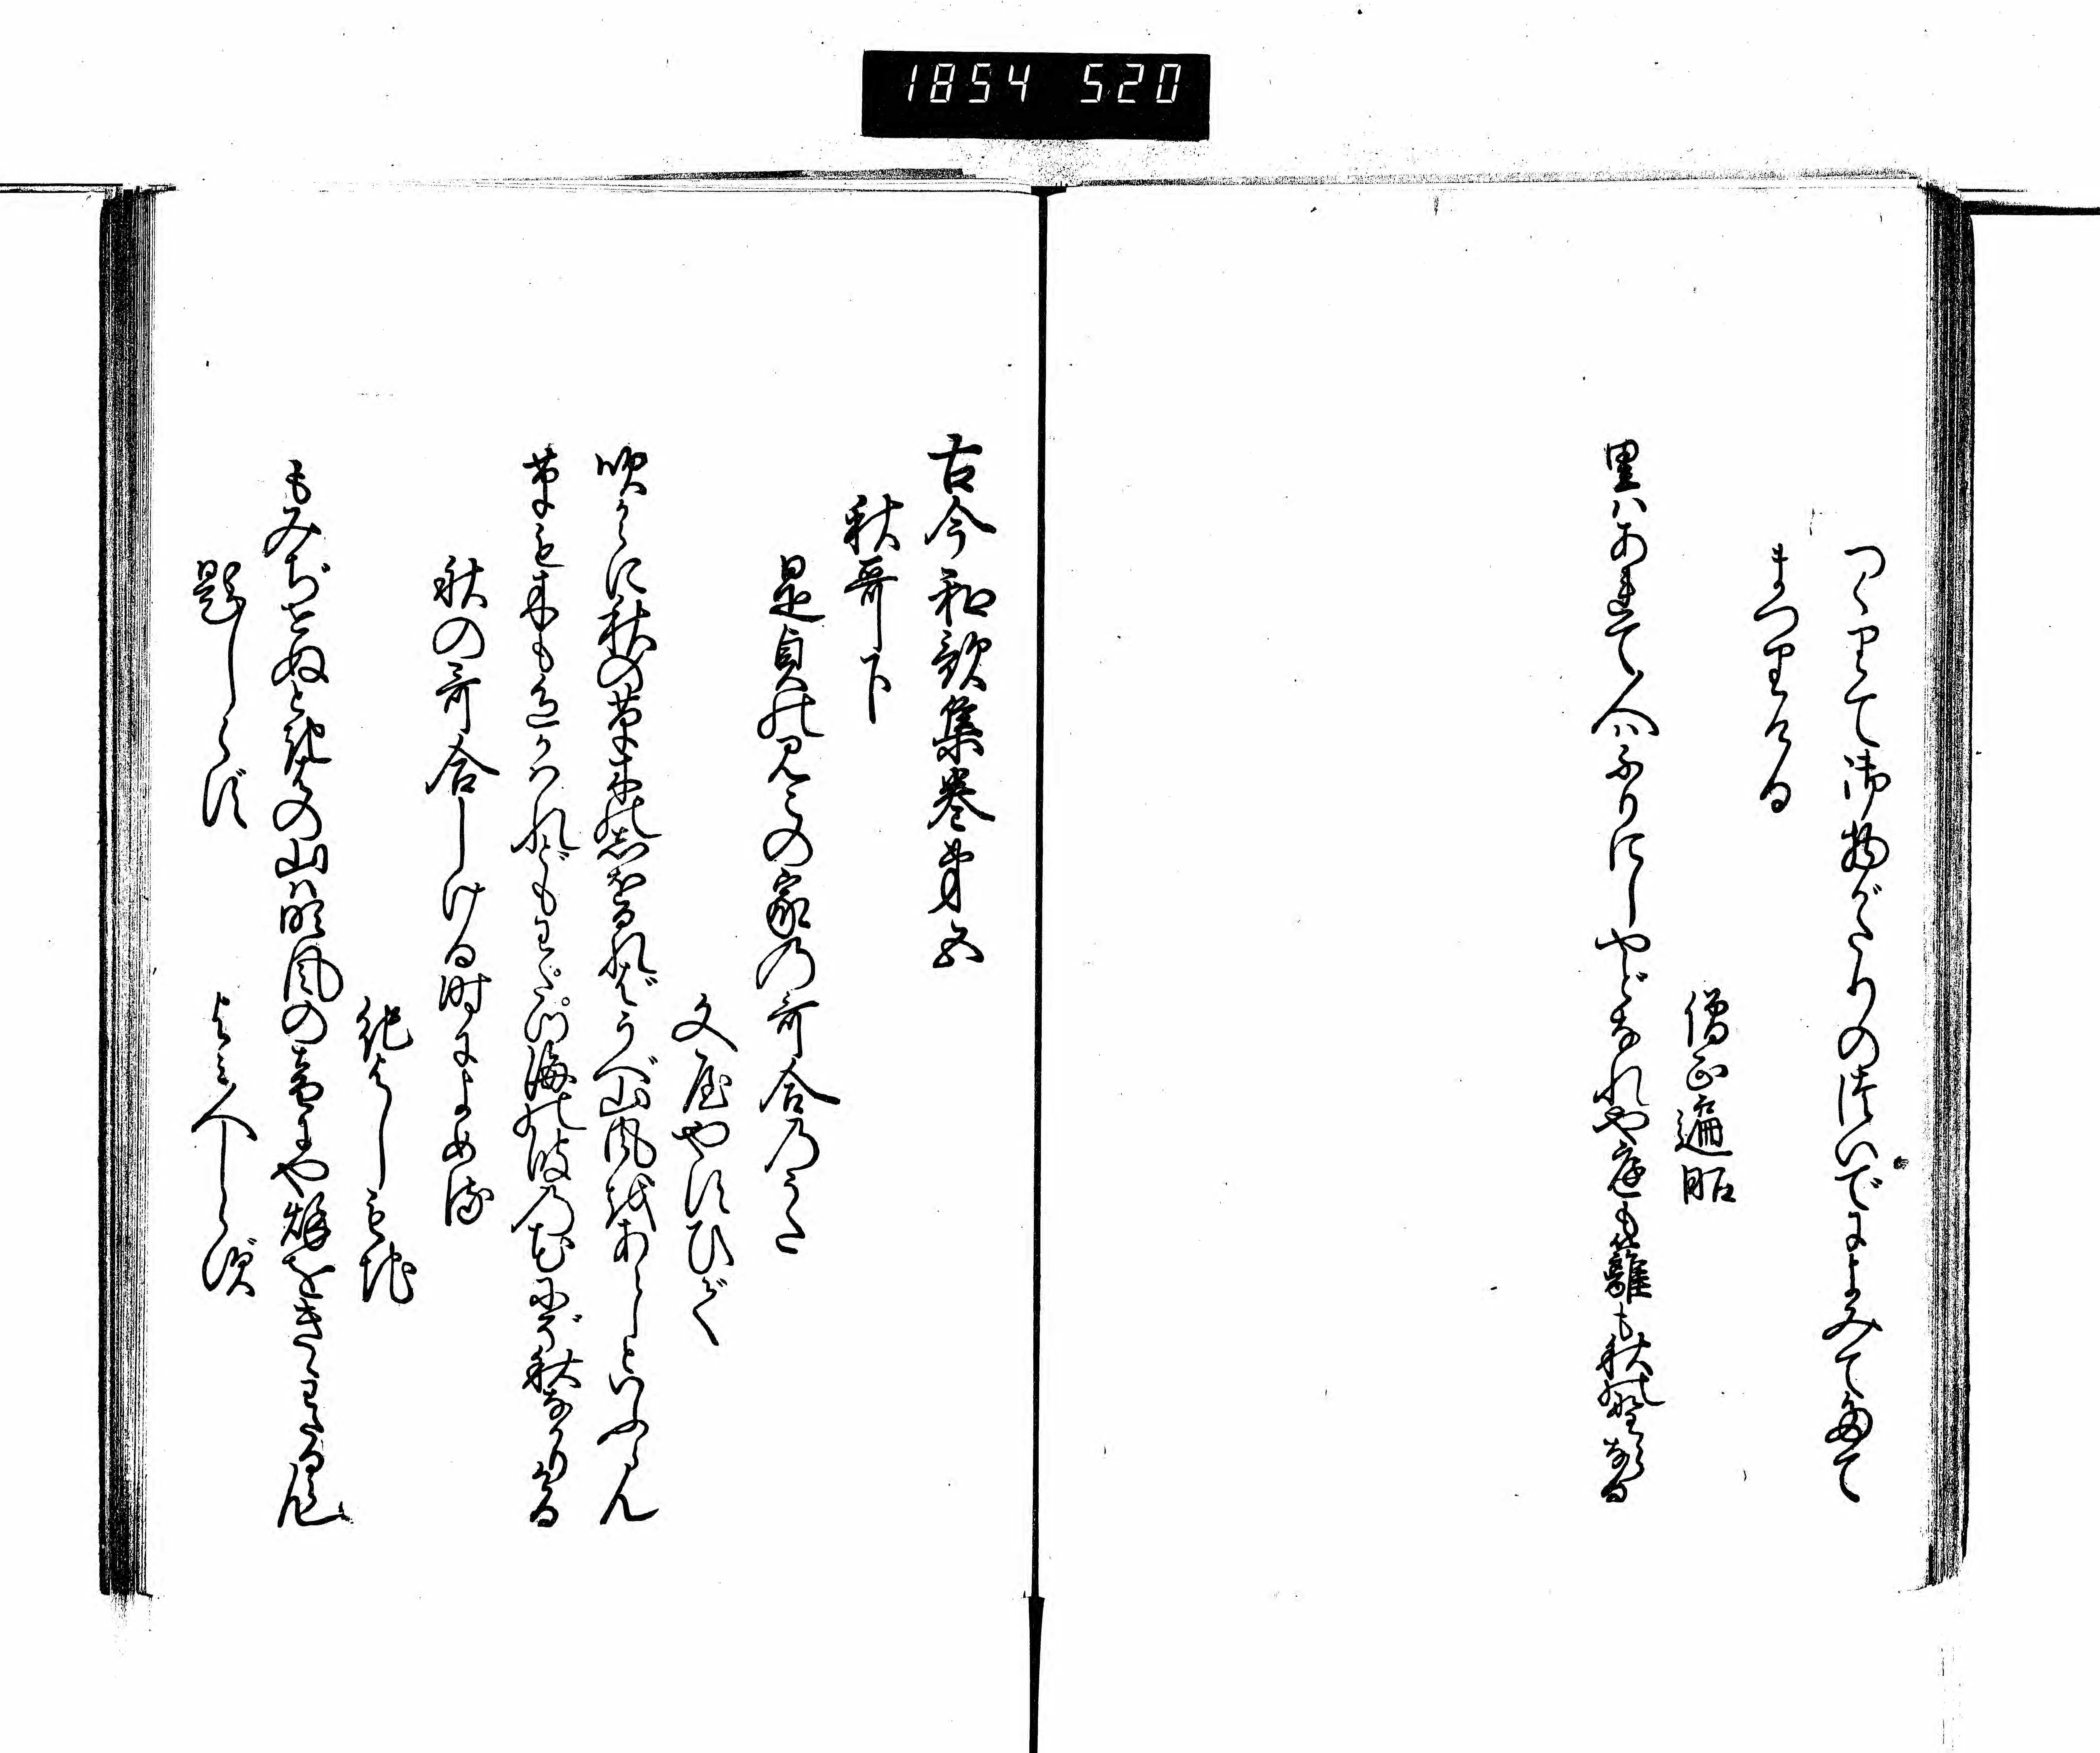 1854 520
つくりて御物がたりのつゐでによみてたて
まつりける
僧正遍昭
里はあれて人はふりにしやどなれや庭も籬も秋の野らなる
古今和歌集巻第五
秋哥下
是貞のみこの家の哥合のうた
文屋やすひで
吹からに秋の草木のしほるればうべ山風をあらしといふらん
草も木も色かはれどもわたつ海の波の花にぞ秋なかりける
秋の哥合しける時によめる
紀よしもち
もみぢせぬときはの山は吹風の音にや秌をきゝわたる覧
題しらず
よみ人しらず